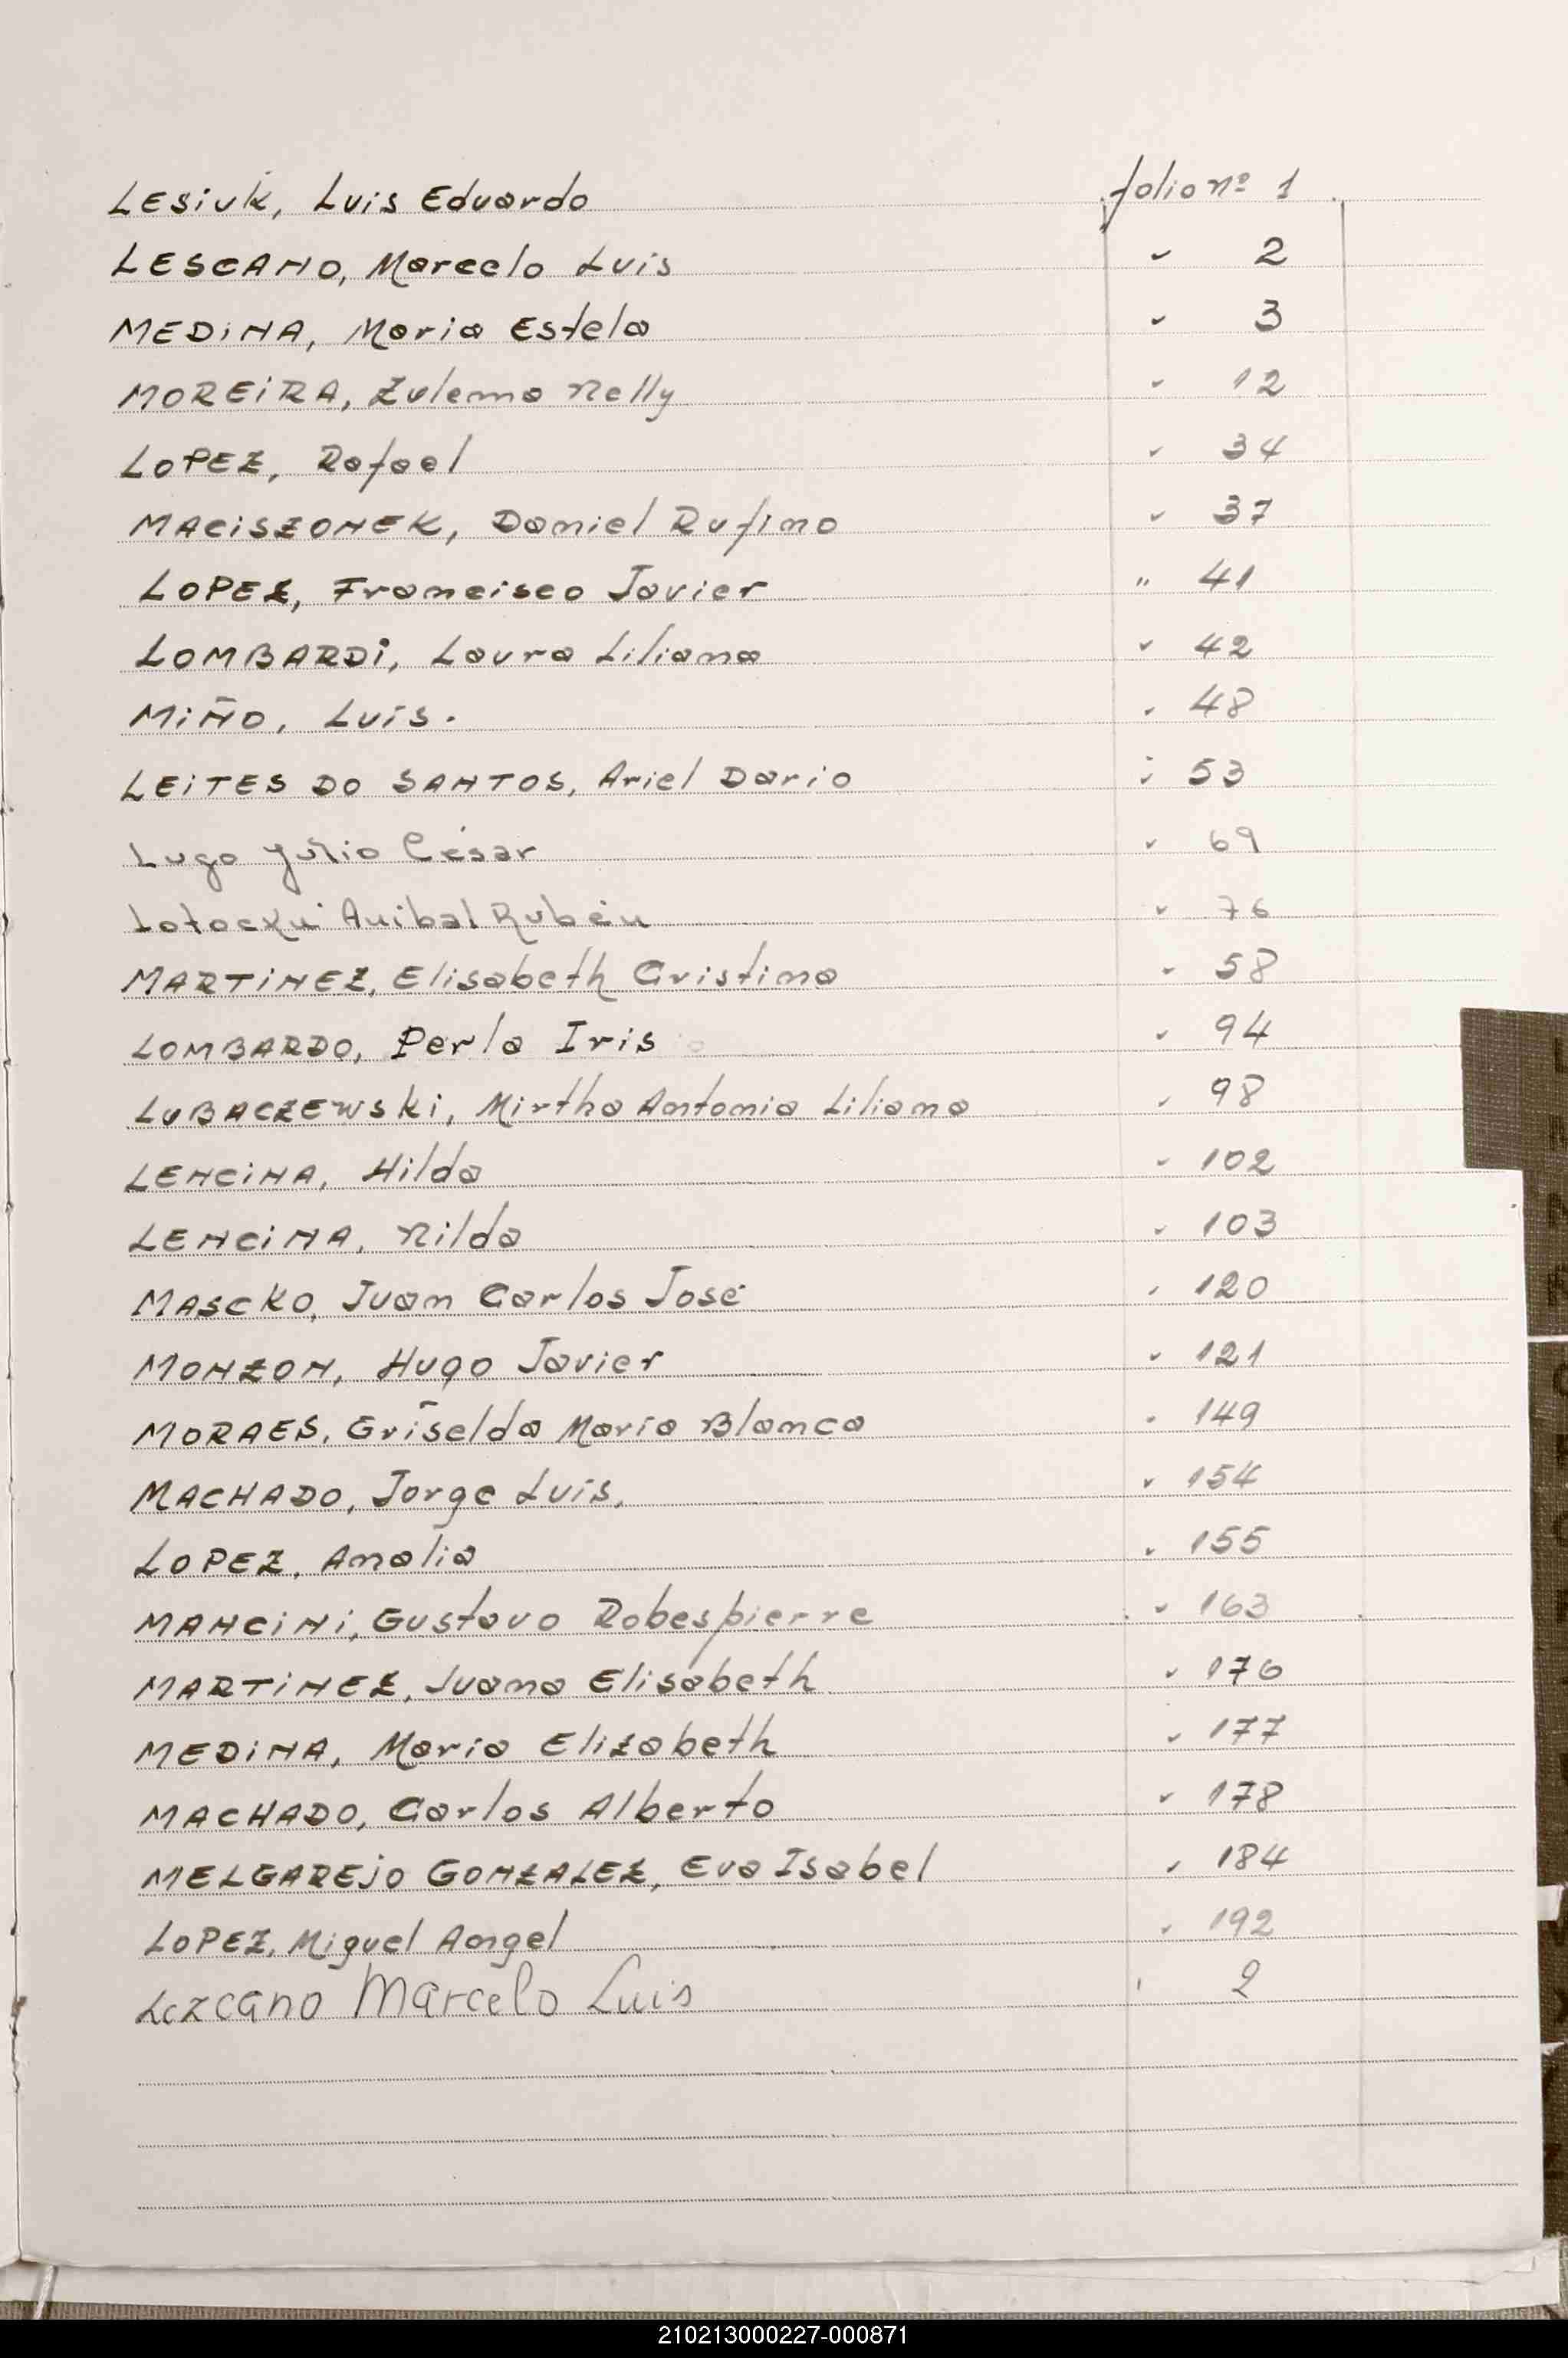 LESIUK, Luis Eduardo folio nº 1
LESCANO, Marcelo Luis " 2
MEDINA, Maria Estela " 3
MOREIRA, Zulema Nelly " 12
LOPEZ, Rafael " 34
MACISZONEK, Daniel Rufino " 37
LOPEZ, Francisco Javier " 41
LOMBARDI, Laura Liliana " 42
MIÑO, Luis. " 48
LEITES DO SANTOS, Ariel Dario " 53
Lugo Julio César " 69
Lotocki Anibal Rubén " 76
MARTINEZ, Elisabeth Cristina " 58
LOMBARDO, Perla Iris " 94
LUBACZEWSKI, Mirtha Antonia Liliana " 98
LENCINA, Hilda " 102
LENCINA, Nilda " 103
MASCKO, Juan Carlos José " 120
MONZON, Hugo Javier " 121
MORAES, Griselda Maria Blanca " 149
MACHADO, Jorge Luis, " 154
LOPEZ, Amalia " 155
MANCINI, Gustavo Robespierre " 163
MARTINEZ, Juana Elisabeth " 176
MEDINA, Maria Elizabeth " 177
MACHADO, Carlos Alberto " 178
MELGAREJO GONZALEZ, Eva Isabel " 184
LOPEZ, Miguel Angel " 192
Lezcano Marcelo Luis " 2
210213000227-000871